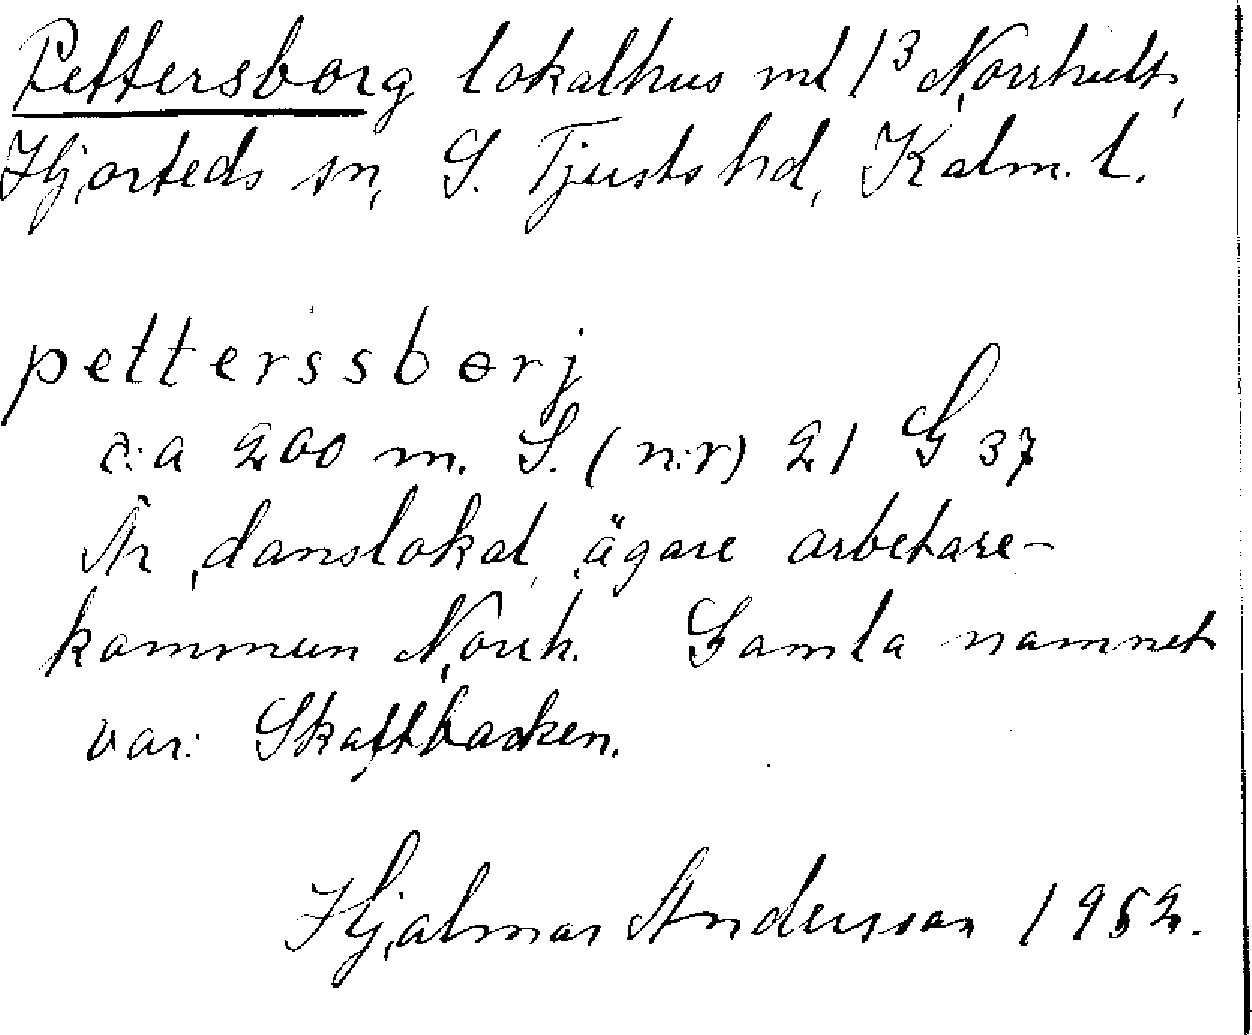 Pettersborg lokalhus ml 1³ Norrhult,
Hjorteds sn, S. Tjusts hd, Kalm. l.
petterssborj
c:a 200 m. S. (n:r) 21 G 37
Är danslokal, ägare arbetare-
kommun Norrh. Gamla namnet
var: Skaftbacken.
Hjalmar Andersson 1952.